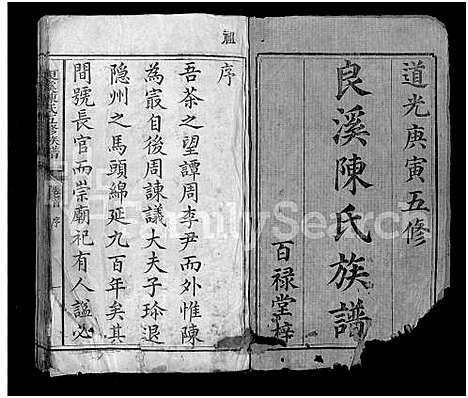 道光庚寅五修
良溪陳氏族譜
百禄堂梓
祖
序
吾茶之望譚周李尹而外惟陳
為最自後周諫議大夫子琀退
隐州之馬頭綿延九百年矣其
間號長官而崇廟祀有人謚必
FamilySearch